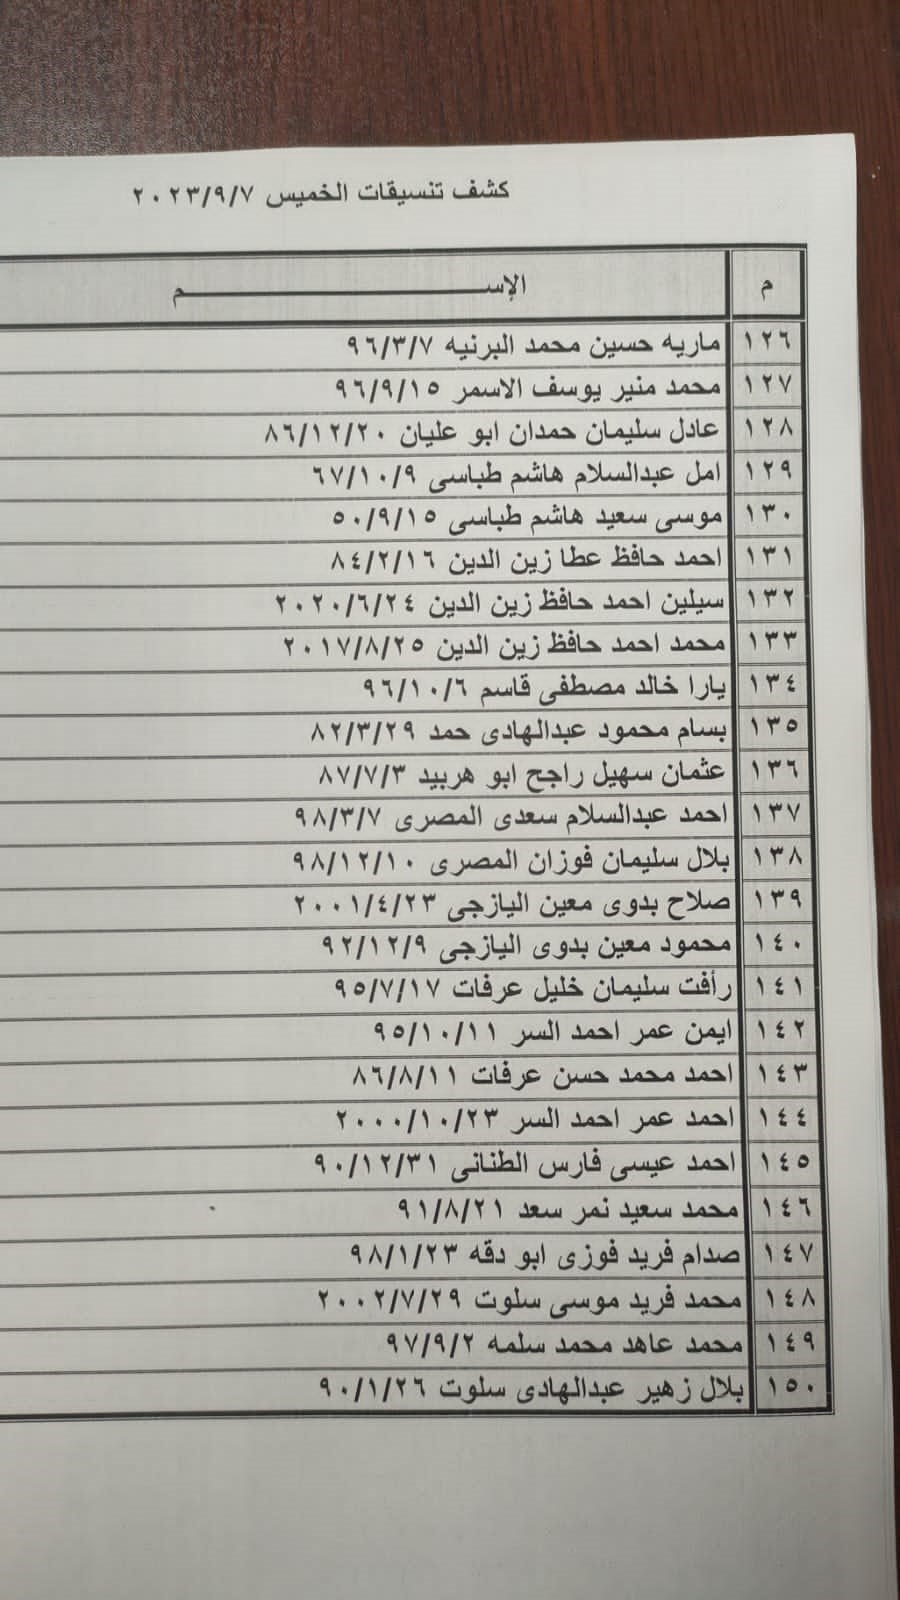 كشف تنسيقات الخميس ٢٠٢٣/٩/٧
م الإســـــــــم
١٢٦ ماريه حسين محمد البرنيه ٩٦/٣/٧
١٢٧ محمد منير يوسف الاسمر ٩٦/٩/١٥
١٢٨ عادل سليمان حمدان ابو عليان ٨٦/١٢/٢٠
١٢٩ امل عبدالسلام هاشم طباسى ٦٧/١٠/٩
١٣٠ موسى سعيد هاشم طباسى ٥٠/٩/١٥
١٣١ احمد حافظ عطا زين الدين ٨٤/٢/١٦
١٣٢ سيلين احمد حافظ زين الدين ٢٠٢٠/٦/٢٤
١٣٣ محمد احمد حافظ زين الدين ٢٠١٧/٨/٢٥
١٣٤ يارا خالد مصطفى قاسم ٩٦/١٠/٦
١٣٥ بسام محمود عبدالهادى حمد ٨٢/٣/٢٩
١٣٦ عثمان سهيل راجح ابو هربيد ٨٧/٧/٣
١٣٧ احمد عبدالسلام سعدى المصرى ٩٨/٣/٧
١٣٨ بلال سليمان فوزان المصرى ٩٨/١٢/١٠
١٣٩ صلاح بدوى معين اليازجى ٢٠٠١/٤/٢٣
١٤٠ محمود معين بدوى اليازجى ٩٢/١٢/٩
١٤١ رأفت سليمان خليل عرفات ٩٥/٧/١٧
١٤٢ ايمن عمر احمد السر ٩٥/١٠/١١
١٤٣ احمد محمد حسن عرفات ٨٦/٨/١١
١٤٤ احمد عمر احمد السر ٢٠٠٠/١٠/٢٣
١٤٥ احمد عيسى فارس الطنانى ٩٠/١٢/٣١
١٤٦ محمد سعيد نمر سعد ٩١/٨/٢١
١٤٧ صدام فريد فوزى ابو دقه ٩٨/١/٢٣
١٤٨ محمد فريد موسى سلوت ٢٠٠٢/٧/٢٩
١٤٩ محمد عاهد محمد سلمه ٩٧/٩/٢
١٥٠ بلال زهير عبدالهادى سلوت ٩٠/١/٢٦